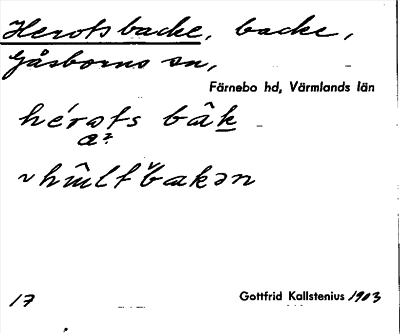 Herotsbacke, backe,
Gåsborns sn,
Färnebo hd, Värmlands län
hérots bâk
a?
Gottfrid Kallstenius 1903
17